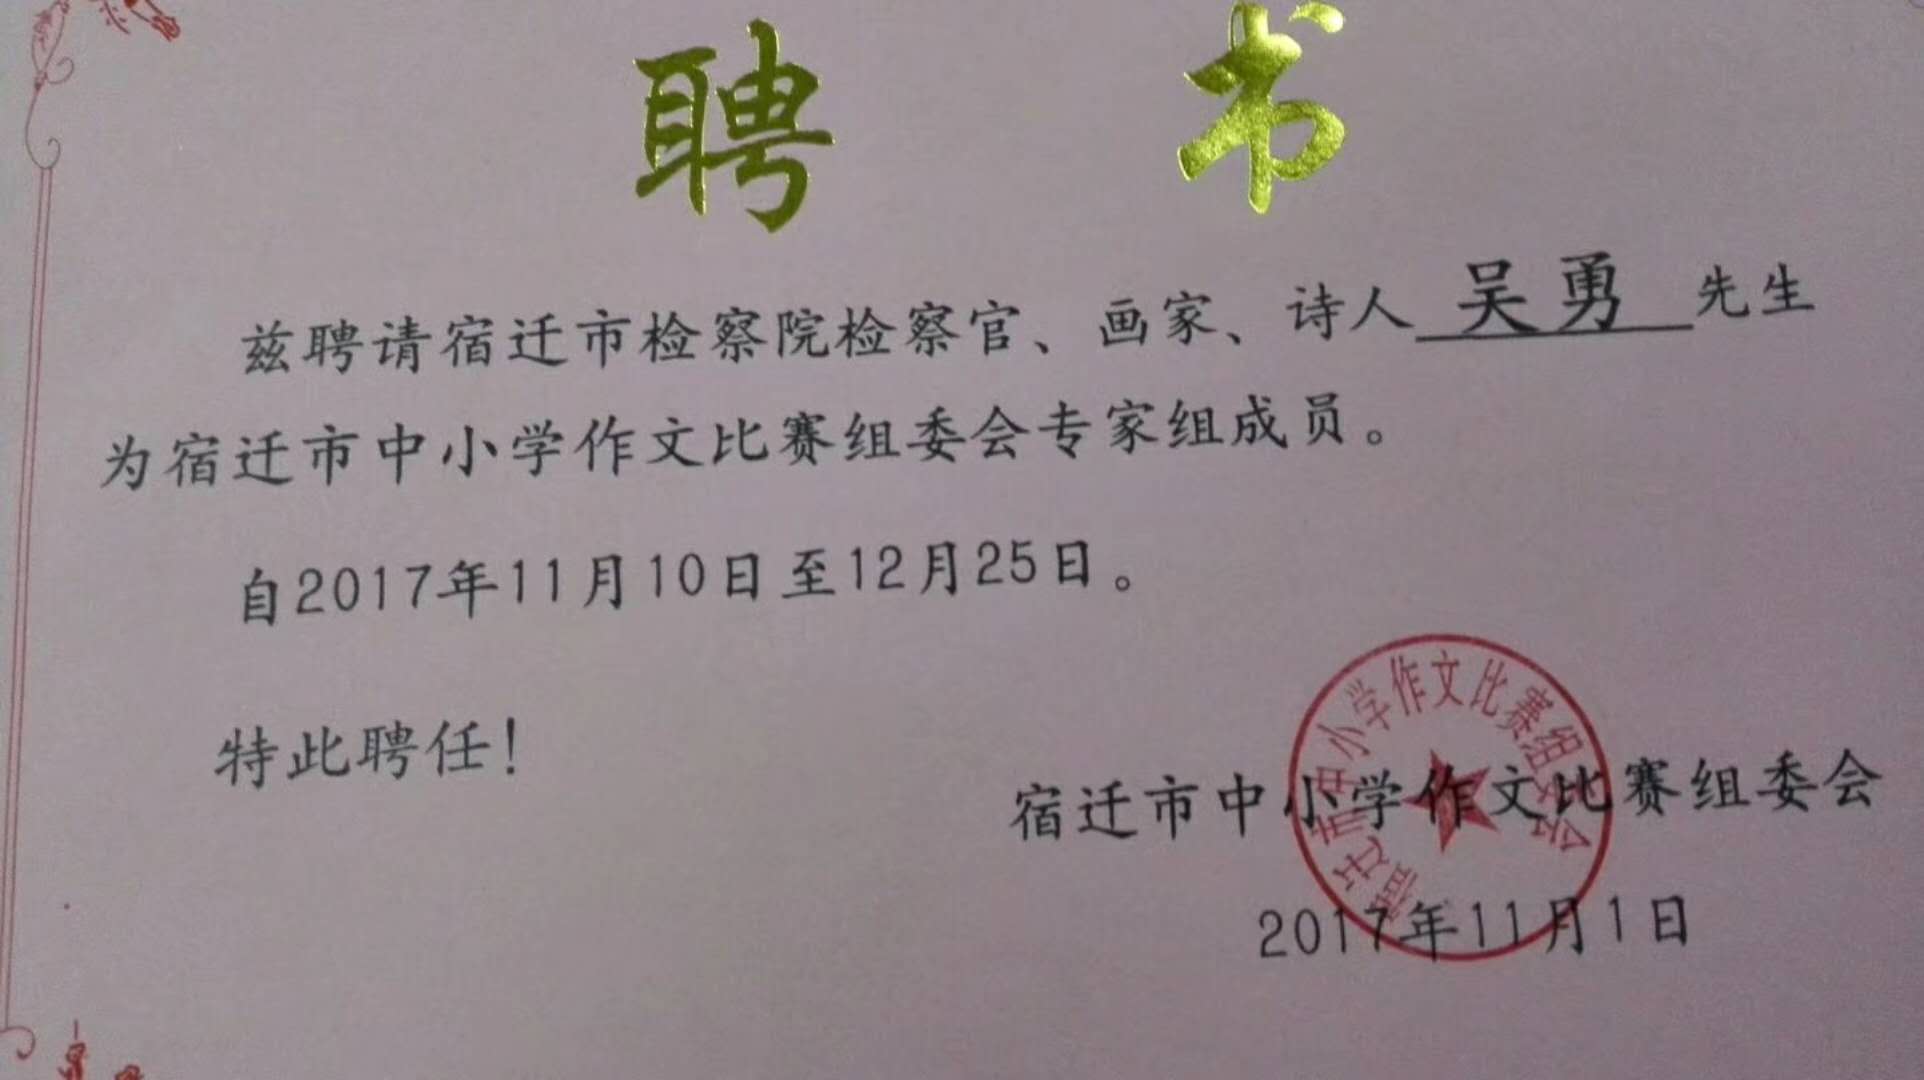 聘 书
兹聘请宿迁市检察院检察官、画家、诗人 吴勇 先生
为宿迁市中小学作文比赛组委会专家组成员。
自2017年11月10日至12月25日。
特此聘任！
宿迁市中小学作文比赛组委会
2017年11月1日
宿迁市中小学作文比赛组委会